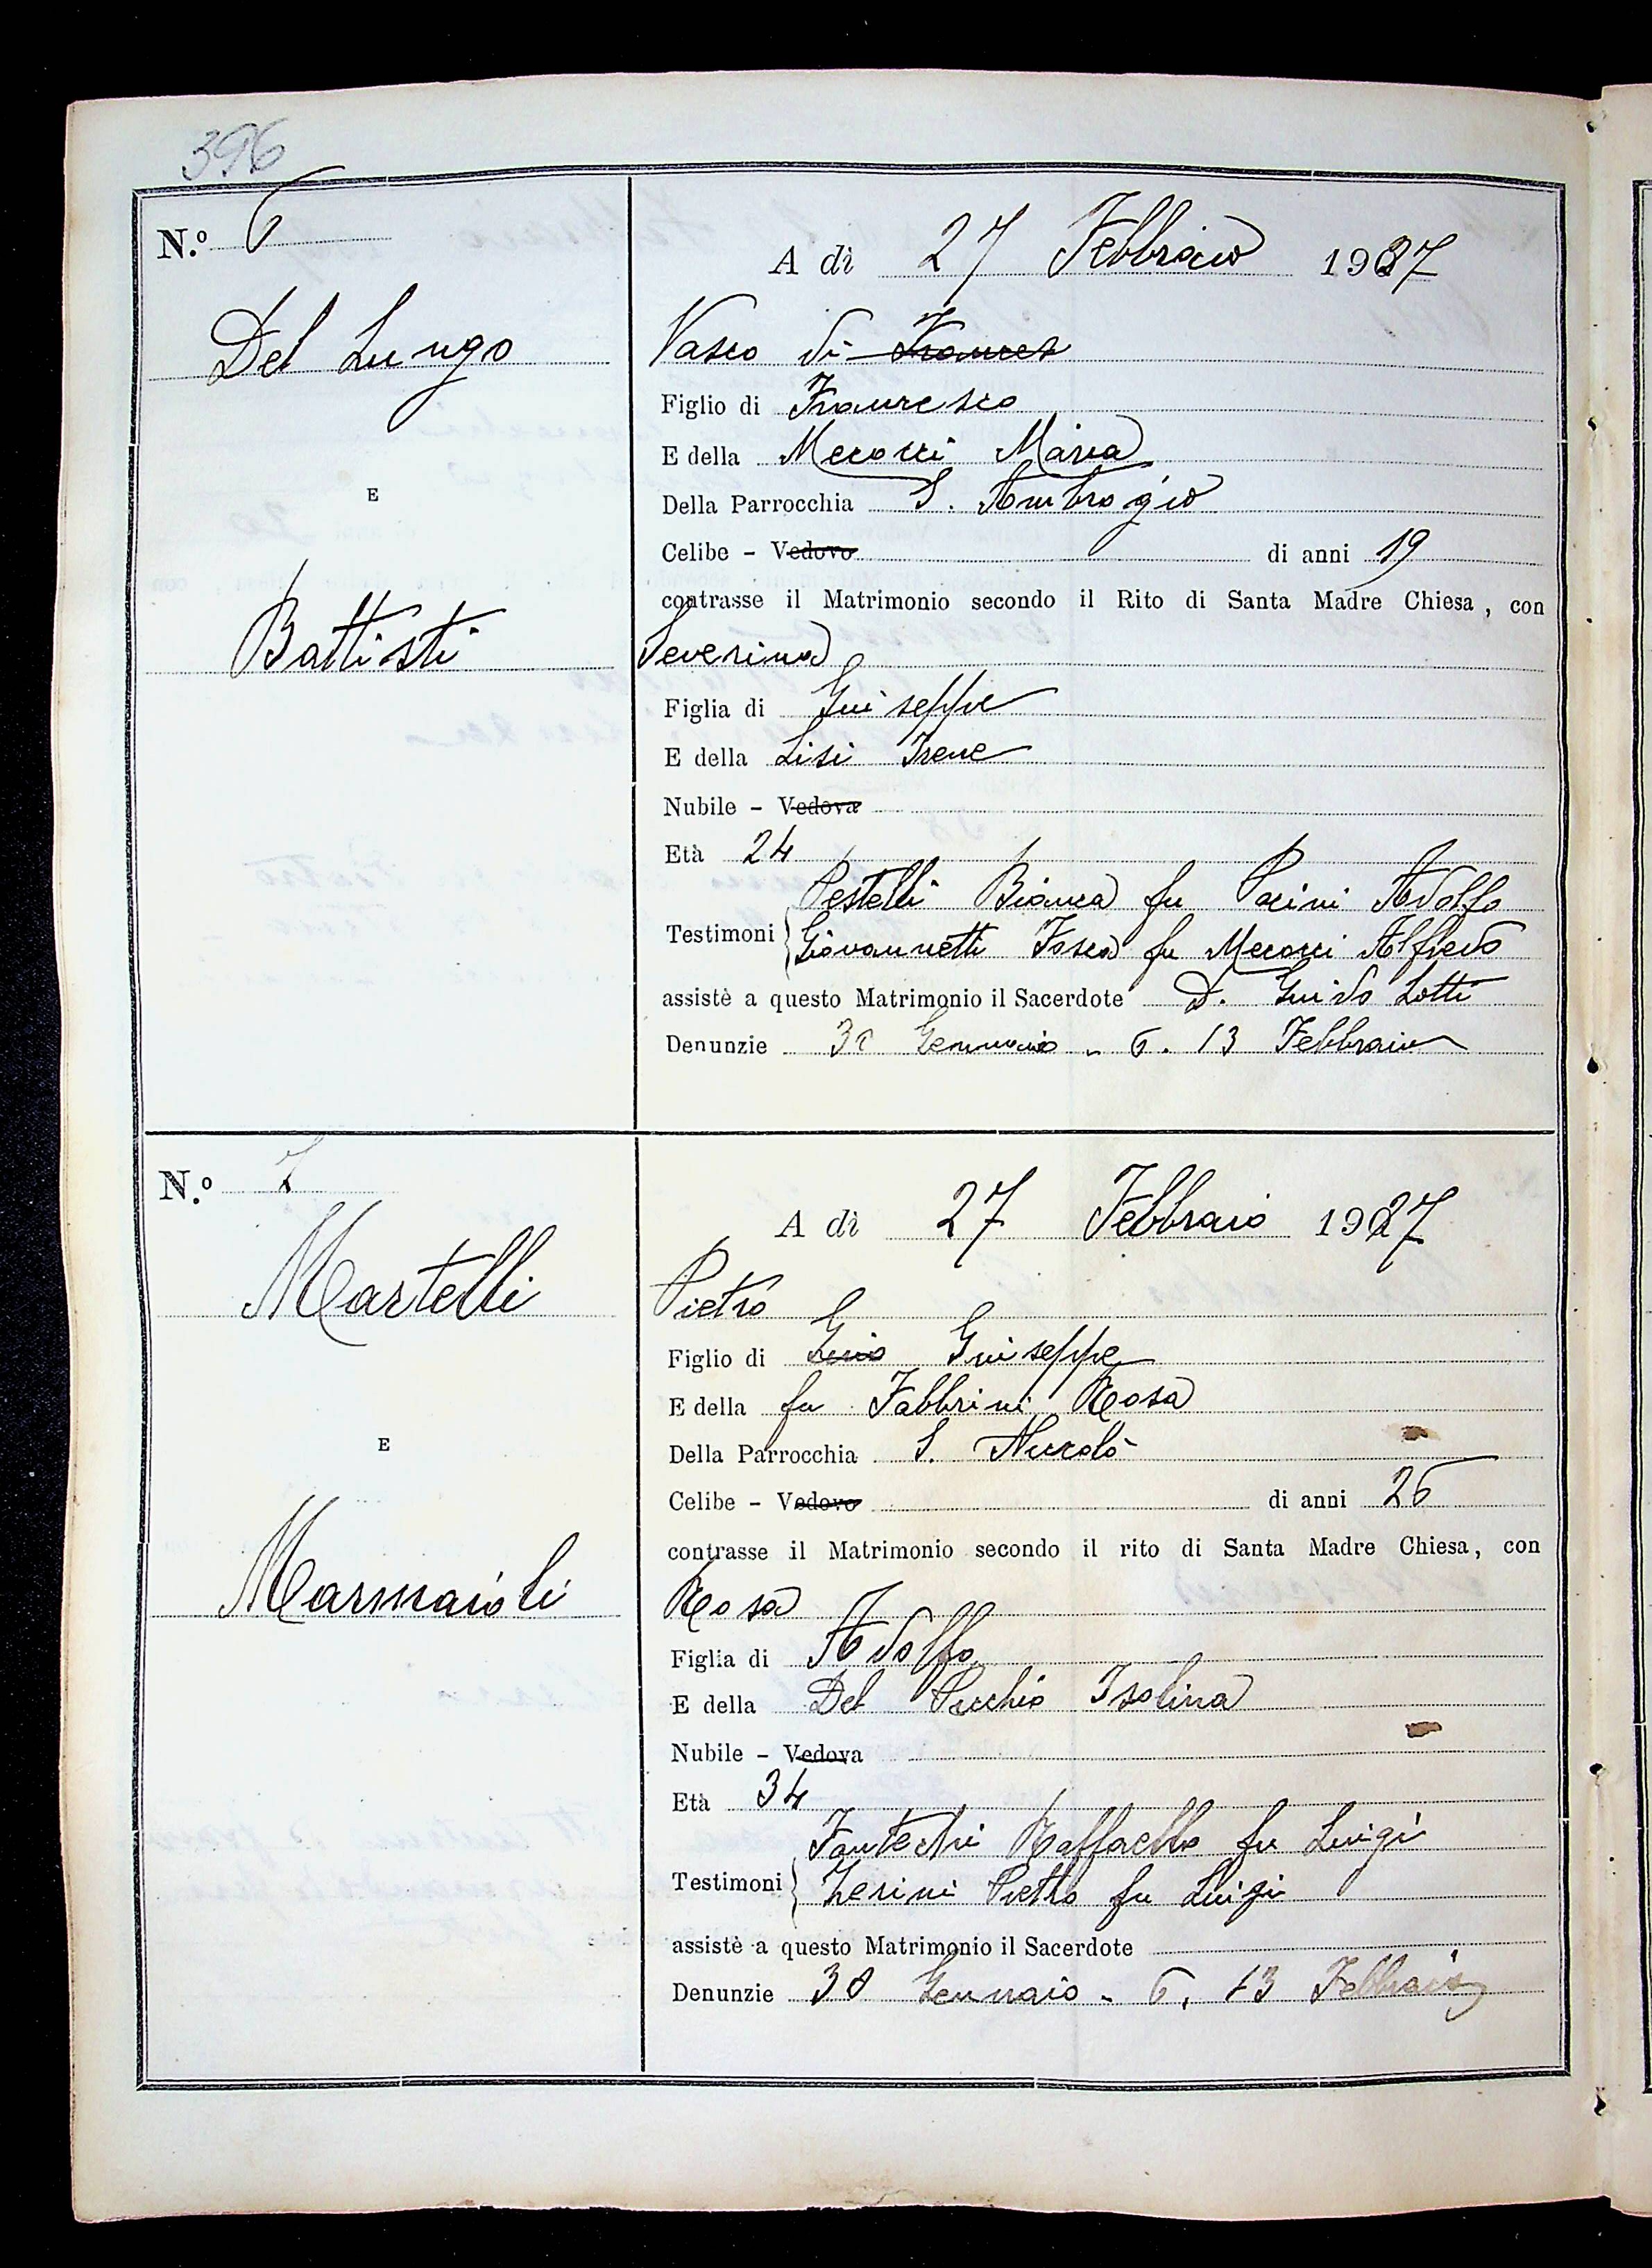 396
N.º 6
A dì 27 Febbraio 1927
Del Lungo
Vasco di Frances
Figlio di Francesco
E della Mecocci Maria
Della Parrocchia S. Ambrogio
E
Celibe - Vedovo di anni 19
contrasse il Matrimonio secondo il Rito di Santa Madre Chiesa, con
Battisti
Severina
Figlia di Giuseppe
E della Lisi Irene
Nubile - Vedova
Età 24
Pestelli Bianca fu Pacini Adolfo
Testimoni Giovannetti Tosca fu Mecocci Alfredo
assistè a questo Matrimonio il Sacerdote D. Guido Lotti
Denunzie 30 Gennaio - 6. 13 Febbraio
N.º 7
A dì 27 Febbraio 1927
Martelli
Pietro
Figlio di Giuseppe
E della fu Fabbrini Rosa
Della Parrocchia S. Niccolò
E
Celibe - Vedovo di anni 26
contrasse il Matrimonio secondo il rito di Santa Madre Chiesa, con
Marmaioli
Rosa
Figlia di Adolfo
E della Del Isolina
Nubile - Vedova
Età 34
Fantechi Raffaello fu Luigi
Testimoni Zerini Pietro fu Luigi
assistè a questo Matrimonio il Sacerdote
Denunzie 30 Gennaio - 6. 13 Febbraio